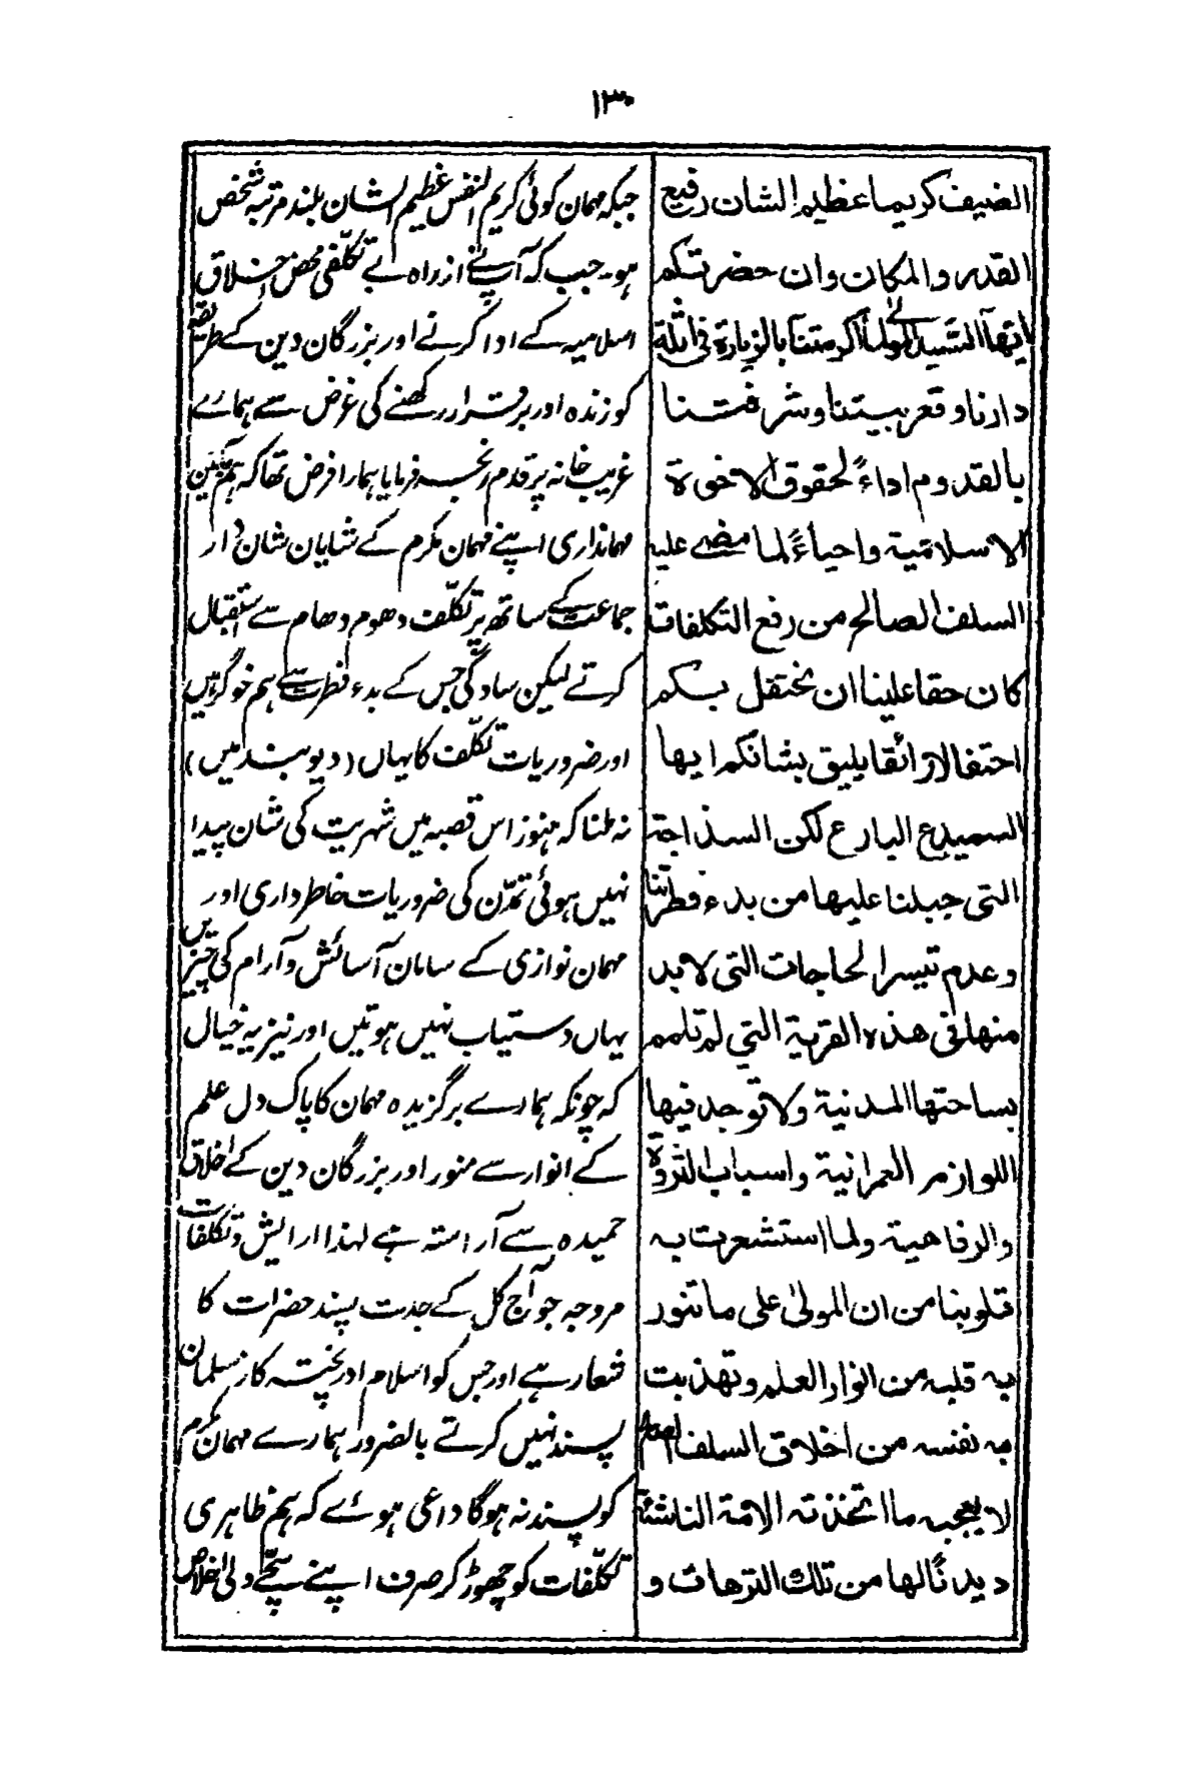 ۱۳۰
الضیف کریما عظیم الشان رفیع
القدر والمکان وان حضرتکم
ایھا السید المولیٰ اکرمتنا بالزیارة فی
دارنا وقعر بیتنا وشرفتنا
بالقدوم اداءً لحقوق الاخوة
الاسلامیة واحیاءً لما مضے علیہ
السلف الصالح من رفع التکلفات
کان حقا علینا ان نحتفل بکم
احتفالا رائقا یلیق بشانکم ایھا
السمیدع البارع لکن السذاجة
التی جبلنا علیھا من بدء فطرتنا
وعدم تیسر الحاجات التی لابد
منھا فی ھذہ القریة التی لم تلمم
بساحتھا المدنیة ولا توجد فیھا
اللوازم العمرانیة واسباب الثروة
والرفاھیة ولما استشعرت بہ
قلوبنا من ان المولیٰ علی ما تنور
بہ قلبہ من انوار العلم وتھذبت
بہ نفسہ من اخلاق السلف
لا یعجبہ ما اتخذتہ الامة الناشئة
دیدنًا لھا من تلک الترھات و
جبکہ مہمان کوئی کریم النفس عظیم الشان بلند مرتبہ شخص
ہو۔ جب کہ آپ نے ازراہ بے تکلّفی محض اخلاق
اسلامیہ کے ادا کرنے اور بزرگان دین کے طریقہ
کو زندہ اور برقرار رکھنے کی غرض سے ہمارے
غریب خانہ پر قدم رنجہ فرمایا ہمارا فرض تھا کہ ہم
مہمانداری اپنے مہمان مکرم کے شایان شان دار
جماعت کے ساتھ پر تکلّف دھوم دھام سے استقبال
کرتے لیکن سادگی جس کے بدء فطرت سے ہم خوگر ہیں
اور ضروریات تکلّف کا یہاں (دیوبند میں)
نہ ملنا کہ ہنوز اس قصبہ میں شہریت کی شان پیدا
نہیں ہوئی تمدّن کی ضروریات خاطر داری اور
مہمان نوازی کے سامان آسائش وآرام کی چیزیں
یہاں دستیاب نہیں ہوتیں اور نیز یہ خیال
کہ چونکہ ہمارے برگزیدہ مہمان کا پاک دل علم
کے انوار سے منور اور بزرگان دین کے اخلاق
حمیدہ سے آراستہ ہے لہذا ارایش وتکلفات
مروجہ جو آج کل کے جدت پسند حضرات کا
شعار ہے اور جس کو اسلام اور پختہ کار مسلمان
پسند نہیں کرتے بالضرور ہمارے مہمان مکرم
کو پسند نہ ہوگا داعی ہوئے کہ ہم ظاہری
تکلّفات کو چھوڑ کر صرف اپنے سچّے دلی اخلاص